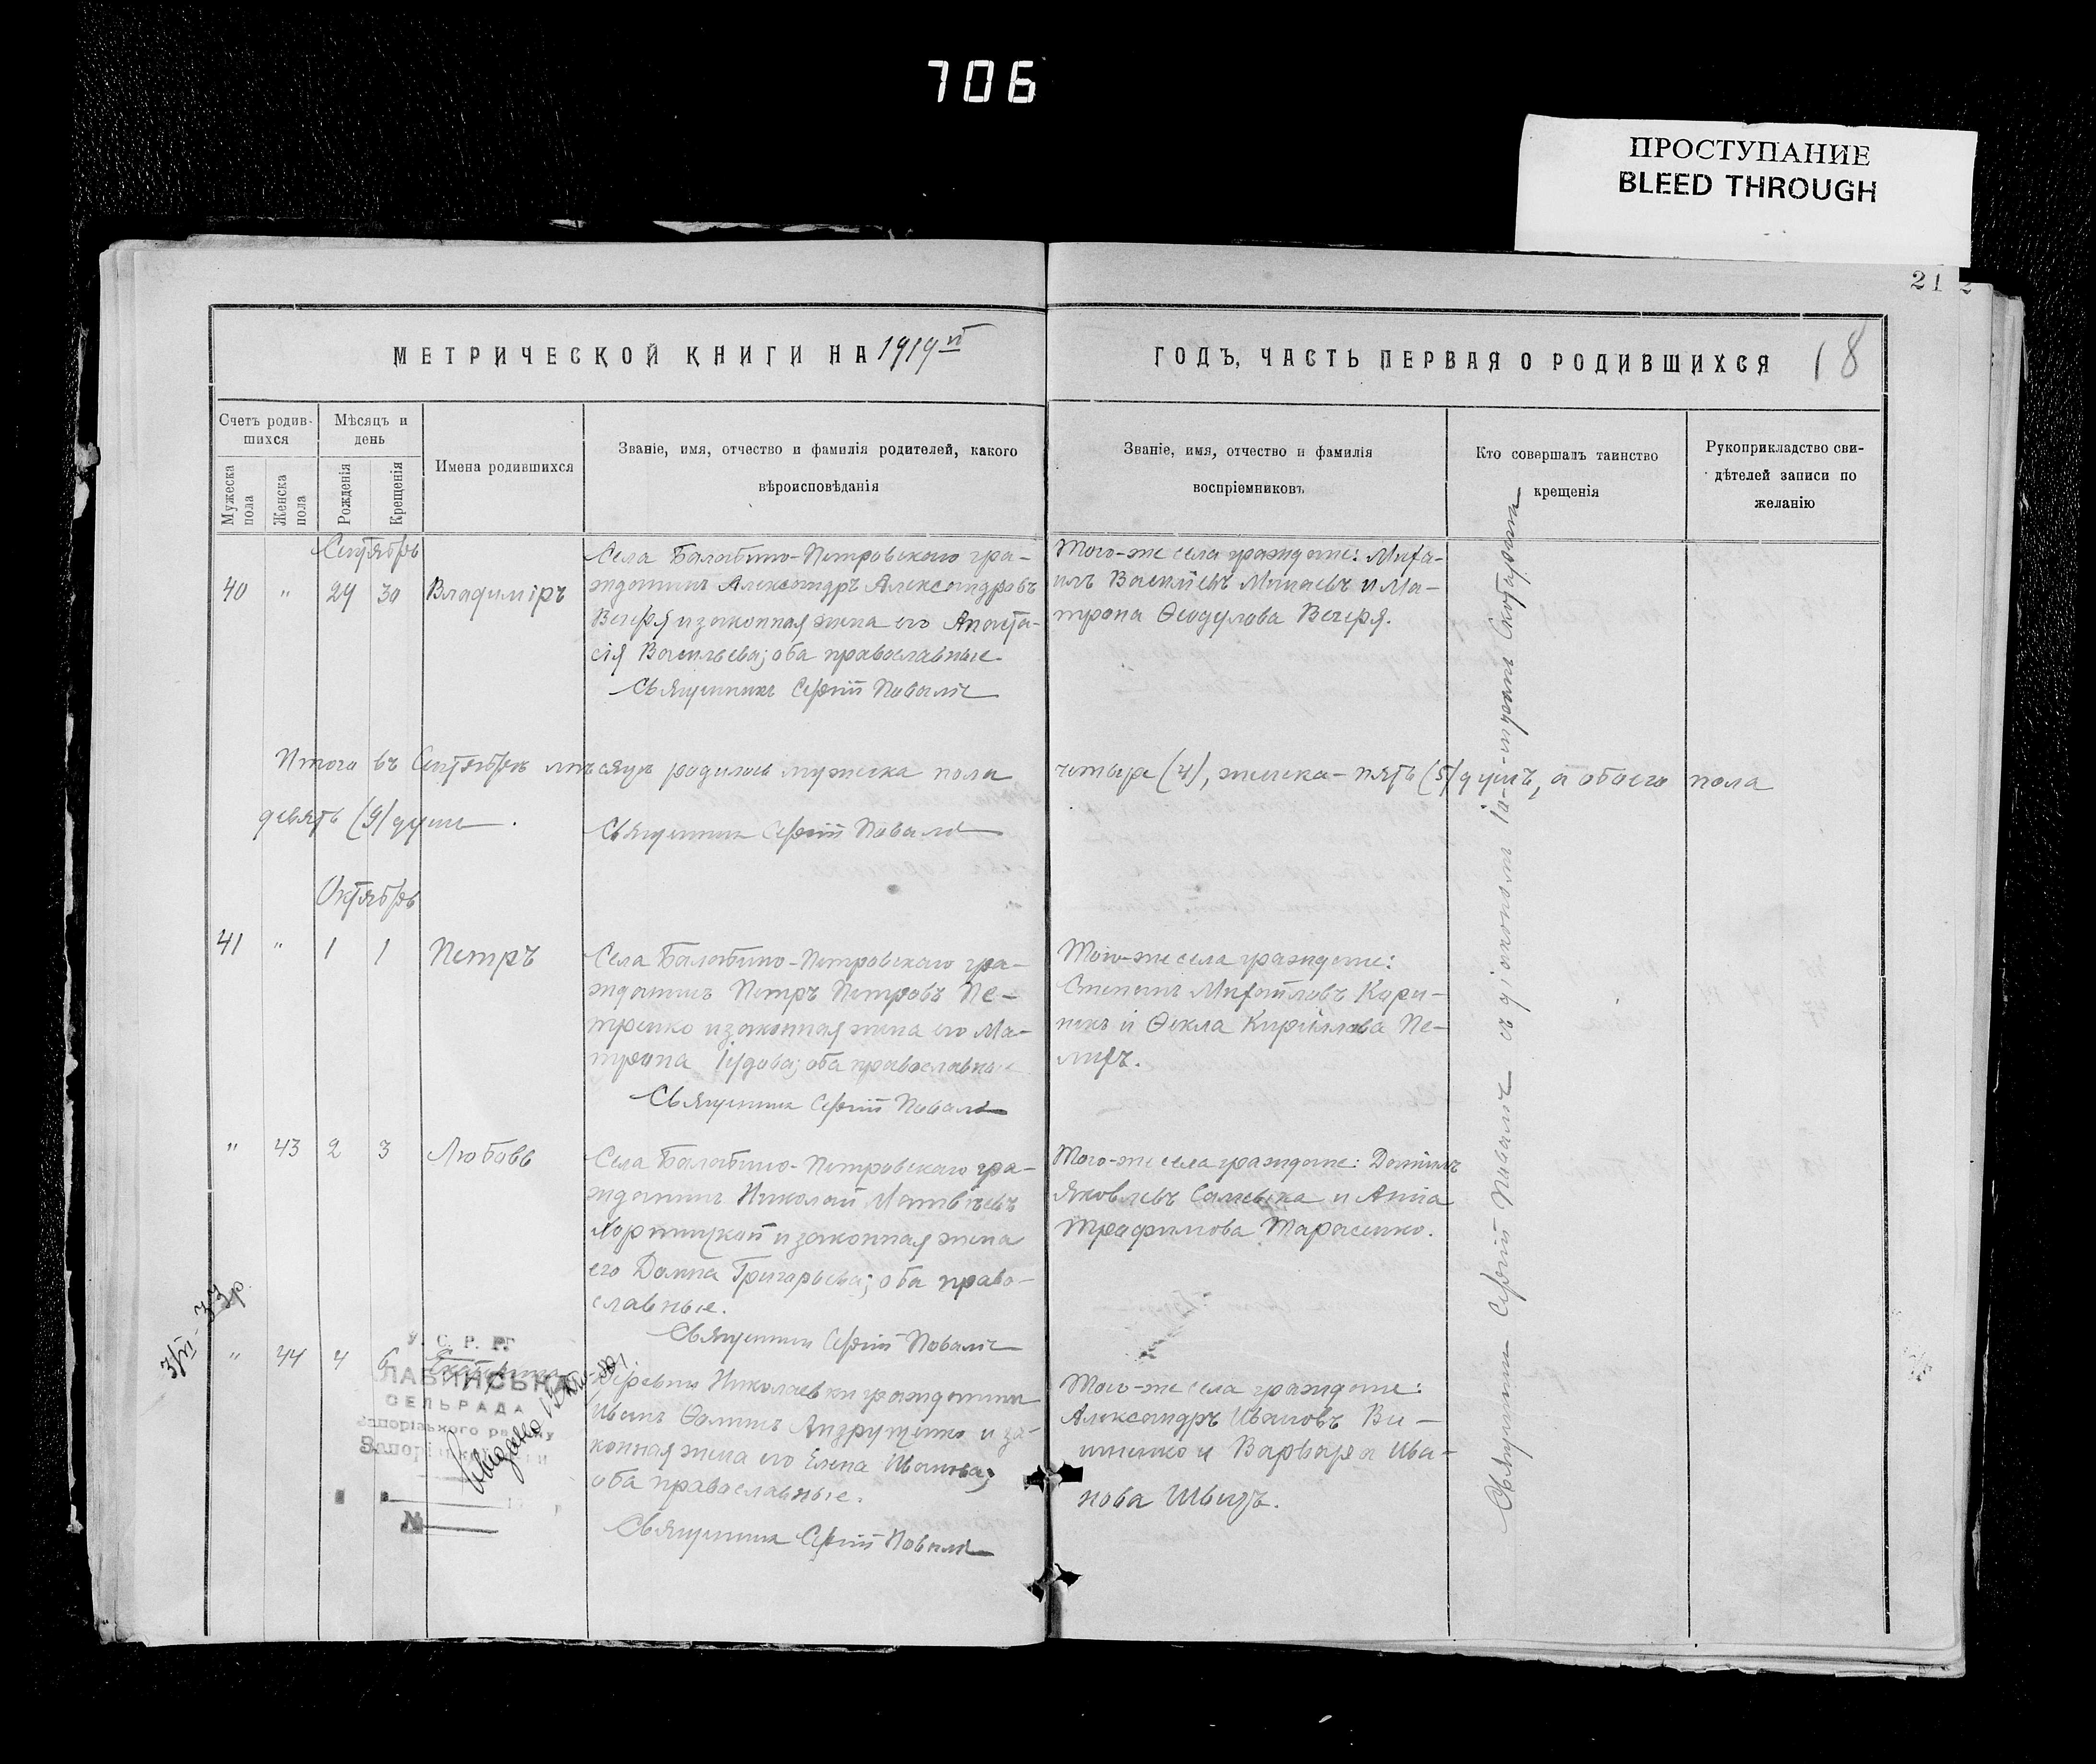 706
ПРОСТУПАНИЕ
BLEED THROUGH
21
МЕТРИЧЕСКОЙ КНИГИ НА 1919й
ГОДЪ, ЧАСТЬ ПЕРВАЯ О РОДИВШИХСЯ
18
Счетъ родив-
шихся
Мужеска
пола
Женска
пола
Мѣсяцъ и
день
Рожденія
Крещенія
Имена родившихся
Званіе, имя, отчество и фамилія родителей, какого
вѣроисповѣданія
Званіе, имя, отчество и фамилія
воспріемниковъ
Кто совершалъ таинство
крещенія
Рукоприкладство сви-
дѣтелей записи по
желанію
Сентябрь
40 " 29 30 Владиміръ
Села Балабино-Петровскаго гра-
жданинъ Александръ Александровъ
Вечеря и законная жена его Анаста-
сія Васильева; оба православные.
Священникъ Сергій
Того-же села граждане: Миха-
илъ Васильевъ Минаевъ и Ма-
трона Ѳеодулова Вечеря.
Итого въ Сентябрѣ мѣсяцѣ родилось мужеска пола
четыре (4), женска - пять (5) душъ, а обоего пола
девять (9) душъ.
Священникъ Сергій
Октябрь
41 " 1 1 Петръ
Села Балабино-Петровскаго гра-
жданинъ Петръ Петровъ Пе-
тренко и законная жена его Ма-
трона Іудова; оба православные
Священникъ Сергій
Того-же села граждане:
Стефанъ Михайловъ
и Ѳекла Кириллова Пе-
лихъ.
" 43 2 3 Любовь
Села Балабино-Петровскаго гра-
жданинъ Николай Матвѣевъ
Хортицкой и законная жена
его Домна Григорьева; оба право-
славные.
Священникъ Сергій
Того-же села граждане: Даніилъ
Яковлевъ и Анна
Трофимова Тарасенко.
3/VI-33р.
" 44 4 6 Екатерина
У. С. Р. Р.
СЕЛЬРАДА
Запорізького району
№
Деревни Николаевки гражданинъ
Иванъ Ѳоминъ Андрущенко и за-
конная жена его Елена Иванова;
оба православные.
Священникъ Сергій
Того-же села граждане:
Александръ Ивановъ Ви-
ниченко и Варвара Ива-
нова Швецъ.
Священникъ Сергій съ діакономъ